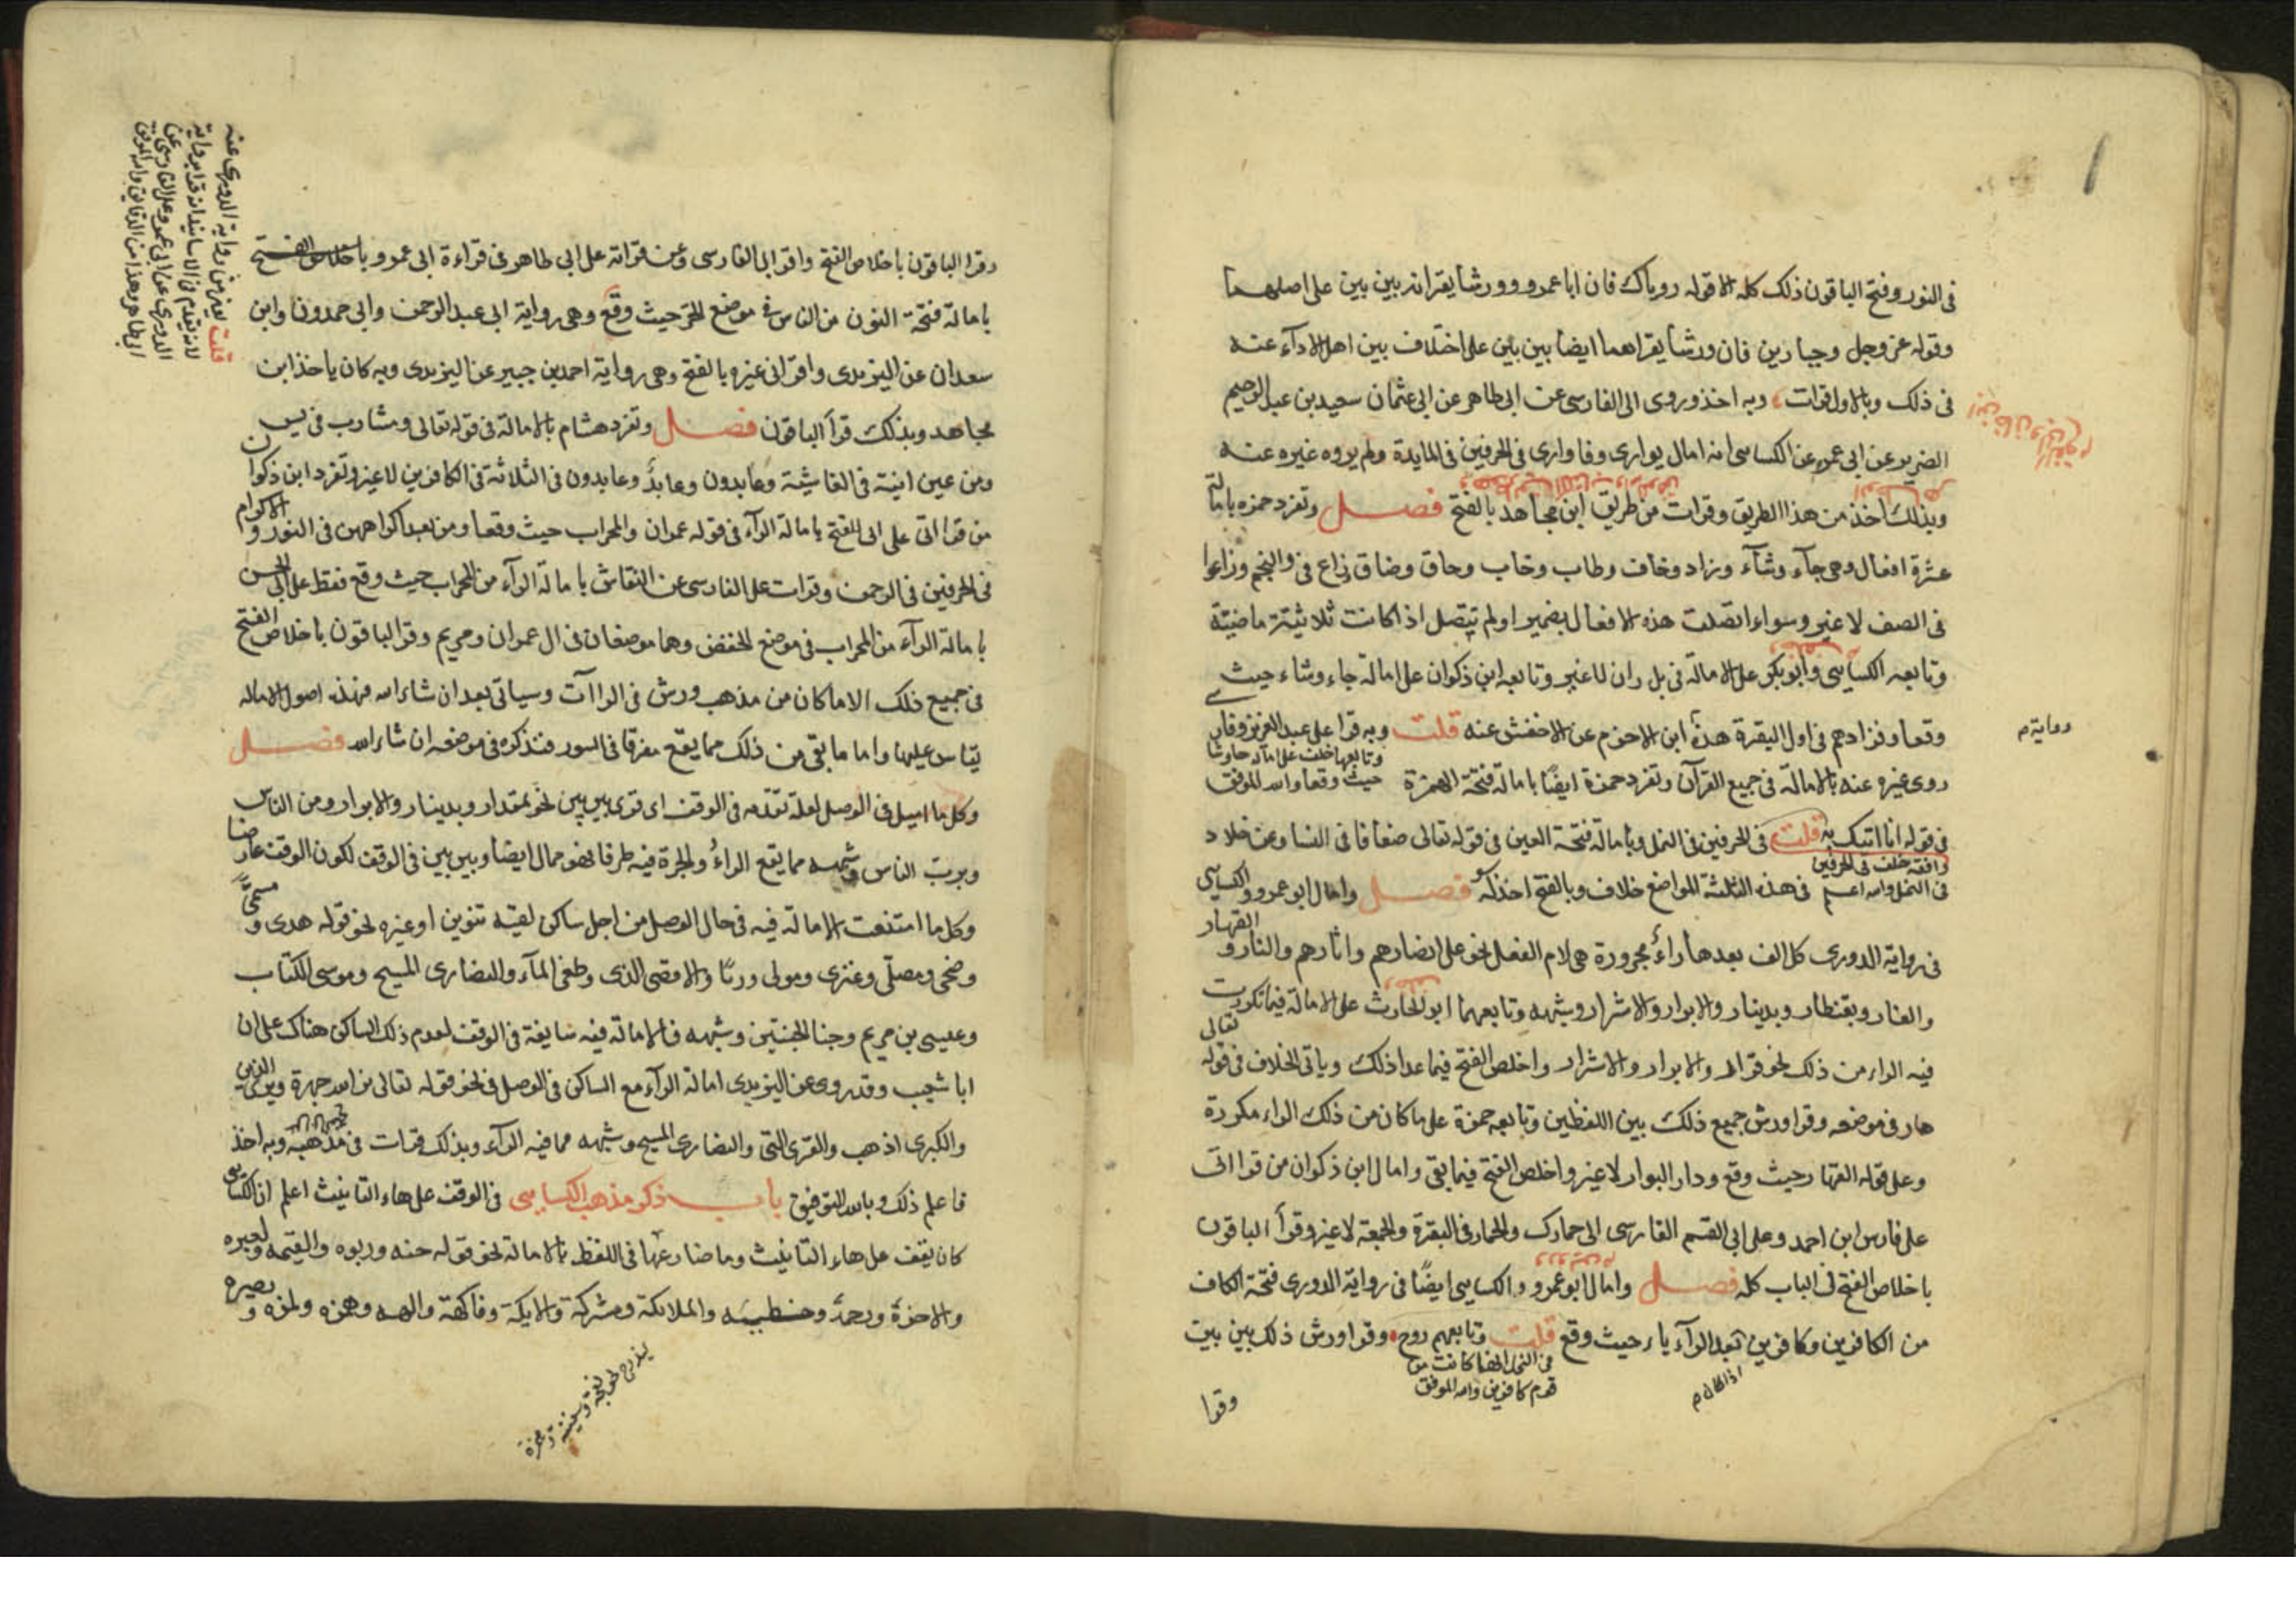 فى النور وفتح الباقون ذلك كله الا قوله روياك فان ابا عمرو وورشا يقرانه بين بين على اصلهما
وقوله عز وجل وجبارين فان ورشا يقراهما ايضا بين بين على اختلاف بين اهل الاداء عنه
فى ذلك وبالاول قرات وبه اخذ وروى الى الفارسى عن ابى طاهر عن ابى عثمان سعيد بن عبد الرحيم
الضرير عن ابى عمر عن الكساسى انه امال يوارى وفاوارى فى الحرفين فى المايدة ولم يروه غيره عنه
وبذلك اخذ من هذا الطريق وقرات من طريق ابن مجاهد بالفتح فصل وتفرد حمزه بامالة
عشرة افعال وهى جآء وشآء وزاد وخاف وطاب وخاب وحاق وضاق زاع فى والنجم وزاعوا
فى الصف لا غير وسواء اتصلت هذه الافعال بضمير او لم تتصل اذا كانت ثلاثية ماضية
وتابعه الكساسى وابو بكر على الامالة فى بل ران لا غير وتابعه ابن ذكوان على امالة جاء وشاء حيث
وقعا وفزادهم فى اول البقرة هذه ابن الاخرم عن الاخفش عنه قلت وبه قرا على عبد العزيز وفارس
روايةم
روى غيره عنه بالامالة فى جميع القرآن وتفرد حمزة ايضًا بامالة فتحة الهمزة
وتابعها خلف على اماله جا وشا
حيث وقعا والله الموفق
فى قوله انا اتيك به قلت فى الحرفين فى النمل وبامالة فتحة العين فى قوله تعالى ضعافا فى النسا وعن خلاد
وافقه خلف فى الحرفين
فى النمل والله اعلم فى هذه الثلثة المواضع خلاف وبالفتح اخذ له فصل وامال ابو عمرو والكساسى
فى رواية الدورى كل الف بعدها راءٌ مجرورة هى لام الفعل نحو على ابصارهم واثارهم والنار والقهار
والغار وبقنطار وبدينار والابرار والاشرار وشبهه وتابعهما ابو الحارث على الامالة فيما تكررت
فيه الراء من ذلك نحو قرار والابرار والاشرار واخلص الفتح فيما عدا ذلك وياتى الخلاف فى قوله تعالى
هار فى موضعه وقرا ورش جميع ذلك بين اللفظين وتابعه حمزة على ما كان من ذلك الراء مكررة
وعلى قوله القهار حيث وقع ودار البوار لا غير واخلص الفتح فيما بقى وامال ابن ذكوان من قرااتى
على فارس ابن احمد وعلى ابى القسم الفارسى الى حمارك والحمار فى البقرة والجمعة لا غير وقرأ الباقون
باخلاص الفتح فى الباب كله فصل وامال ابو عمرو والكسايى ايضًا فى رواية الدورى فتحة الكاف
من الكافرين وكافرين بعد الرآء ياء حيث وقع قلت وتابعهم روح وقرا ورش ذلك بين بين
فى النمل انها كانت من
قوم كافرين والله الموفق
وقرا
وقرا الباقون باخلاص الفتح واقرانى الفارسى عن قراته على ابى طاهر فى قراءة ابى عمرو باخلاص الفتح
بامالة فتحة النون من الناس فى موضع الجر حيث وقع وهى رواية ابى عبد الرحمن وابى حمدون وابن
سعدان عن اليزيدى واقرانى غيره بالفتح وهى رواية احمد بن جبير عن اليزيدى وبه كان ياخذ ابن
مجاهد وبذلك قرأ الباقون فصل وتفرد هشام بالامالة فى قوله تعالى ومشارب فى يس
ومن عين انية فى الغاشية وعابدون وعابدٌ وعابدون فى الثلاثة فى الكافرين لا غير وتفرد ابن ذكوان
من قرااتى على ابى الفتح بامالة الرآء فى قوله عمران والمحراب حيث وقعا ومن بعد اكراههن فى النور والاكرام
فى الحرفين فى الرحمن وقرات على الفارسى عن النقاش بامالة الرآء من المحراب حيث وقع فقط على ابى الحسن
بامالة الرآء من المحراب فى موضع الخفض وهما موضعان فى ال عمران ومريم وقرا الباقون باخلاص الفتح
فى جميع ذلك الا ما كان من مذهب ورش فى الراآت وسياتى بعد ان شاء الله فهذه اصول الاماله
يقاس عليها واما ما بقى من ذلك مما يقع مفرقا فى السور فنذكره فى موضعه ان شاء الله فصل
وكل ما اميل فى الوصل لعلة تقدمه فى الوقف اى قوى بين بين نحو بمقدار وبدينار والابرار ومن الناس
وبرب الناس وشبهه مما يقع الراءُ والجرة فيه طرفا فهو ممال ايضا وبين بين فى الوقف لكون الوقف عارضا
وكل ما امتنعت الامالة فيه فى حال الوصل من اجل ساكن لقيه تنوين او غيره نحو قوله هدى ومسمىً
وضحى ومصلّى وغزى ومولى وربًا والاقصى الذى وطغى المآء والنصارى المسيح وموسى الكتاب
وعيسى بن مريم وجنا الجنتين وشبهه فالامالة فيه سايغة فى الوقف لعدم ذلك الساكن هناك على ان
ابا شعيب وقد روى عن اليزيدى امالة الرآء مع الساكن فى الوصل فى نحو قوله تعالى نرى الله جهرة ويرى الذين
والكبرى اذهب والقرى التى والنصارى المسيح وشبهه مما فيه الرآء وبذلك قرات فى مذهبه وبه اخذ
فاعلم ذلك وبالله التوفيق باب ذكر مذهب الكسايى فى الوقف على هاء التانيث اعلم ان الكسائى
كان يقف على هاء التانيث وما ضارعها فى اللفظ بالامالة نحو قوله جنه وربوه والقيمه ولعبره
والاخرة ورحمة وخطيىه والملائكة ومشركة والايكة وفاكهة والهه وهمزه ولمزه وبصيره
قلت يعنى من رواية الدورى عنه
لانه تقدم فى الاسانيد انه قرا برواية
الدورى عن ابى عمرو على الفارسى عن
ابى طاهر وهذا من